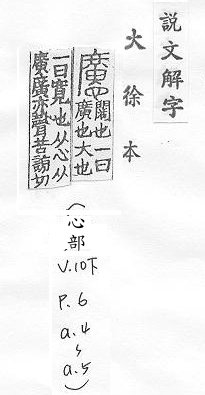 説文解字
大徐本
懬闊也一曰
廣也大也
一曰寬也从心从
廣廣亦聲苦謗切
(心部
V.10下
P.6
a.4
〜
a.5)